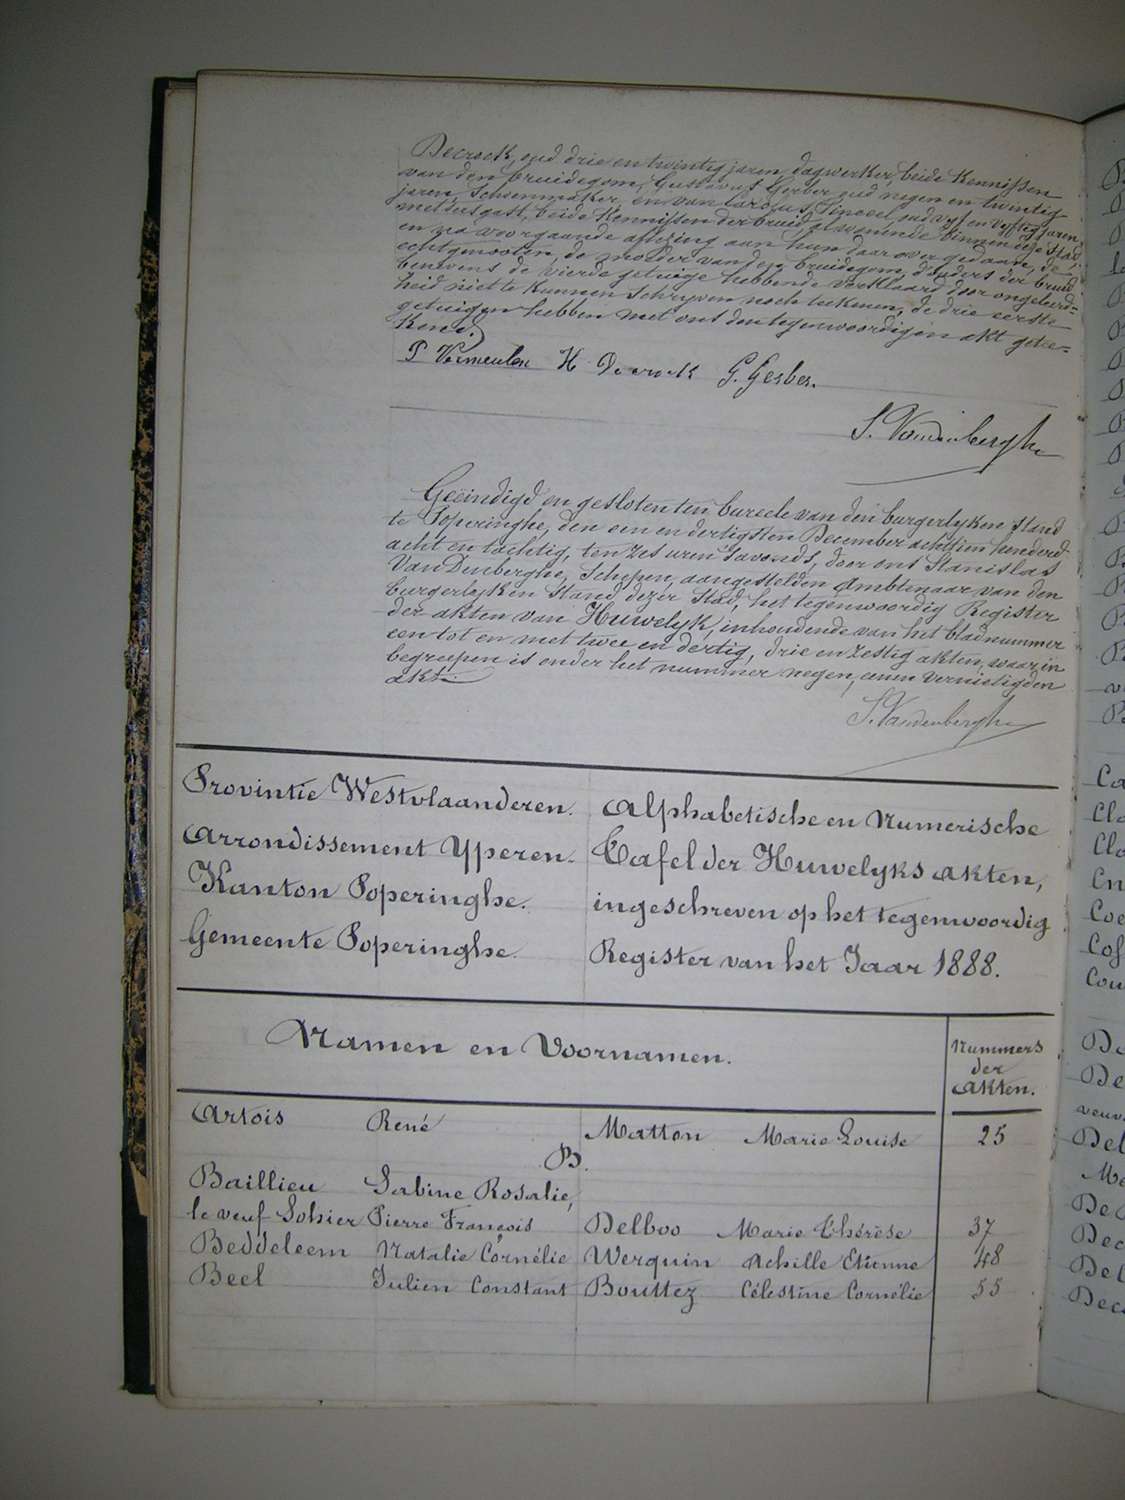 Decrock, oud drie en twintig jaren, dagwerker, beide kennissen
van den bruidegom, Gustavus Gerber oud negen en twintig
jaren, Schoenmaker, en van Carolus oud vyf en vyftig jaren,
metsersgast, beide kennissen der bruid al wonende binnen deze Stad;
en na voorgaande aflezing aan hun daar over gedaan, de
echtgenooten, de moeder van den bruidegom, d'ouders der bruid
benevens de vierde getuige hebbende verklaard door ongeleerd=
heid niet te kunnen schryven noch teekenen, de drie eerste
getuigen hebben met ons den tegenwoordigen akt getee=
kend.
P Vermeulen H Decrock G. Gerber.
S. Vandenberghe
Geëindigd en gesloten ten bureele van den burgerlyken stand
te Poperinghe, den een en dertigsten December achttien honderd
acht en tachtig, ten zes uren 's avonds, door ons Stanislas
VanDenberghe, Schepen, aangestelden Ambtenaar van den
burgerlyken Stand dezer Stad, het tegenwoordig Register
der akten van Huwelyk, inhoudende van het bladnummer
een tot en met twee en dertig, drie en zestig akten, waar in
begreepen is onder het nummer negen, eenen vernietigden
akt.
S. Vandenberghe
Provintie Westvlaanderen. Alphabetische en Numerische
Arrondissement Yperen. Tafel der Huwelyks akten,
Kanton Poperinghe. ingeschreven op het tegenwoordig
Gemeente Poperinghe. Register van het Jaar 1888.
Namen en Voornamen. Nummers
der
Akten.
Artois René Matton Marie Louise 25
B.
Baillieu Sabine Rosalie,
le veuf Sohier Pierre François Delboo Marie Thérèse 37
Beddeleem Natalie Cornélie Werquin Achille Etienne 48
Beel Julien Constant Bouttez Célestine Cornélie 55